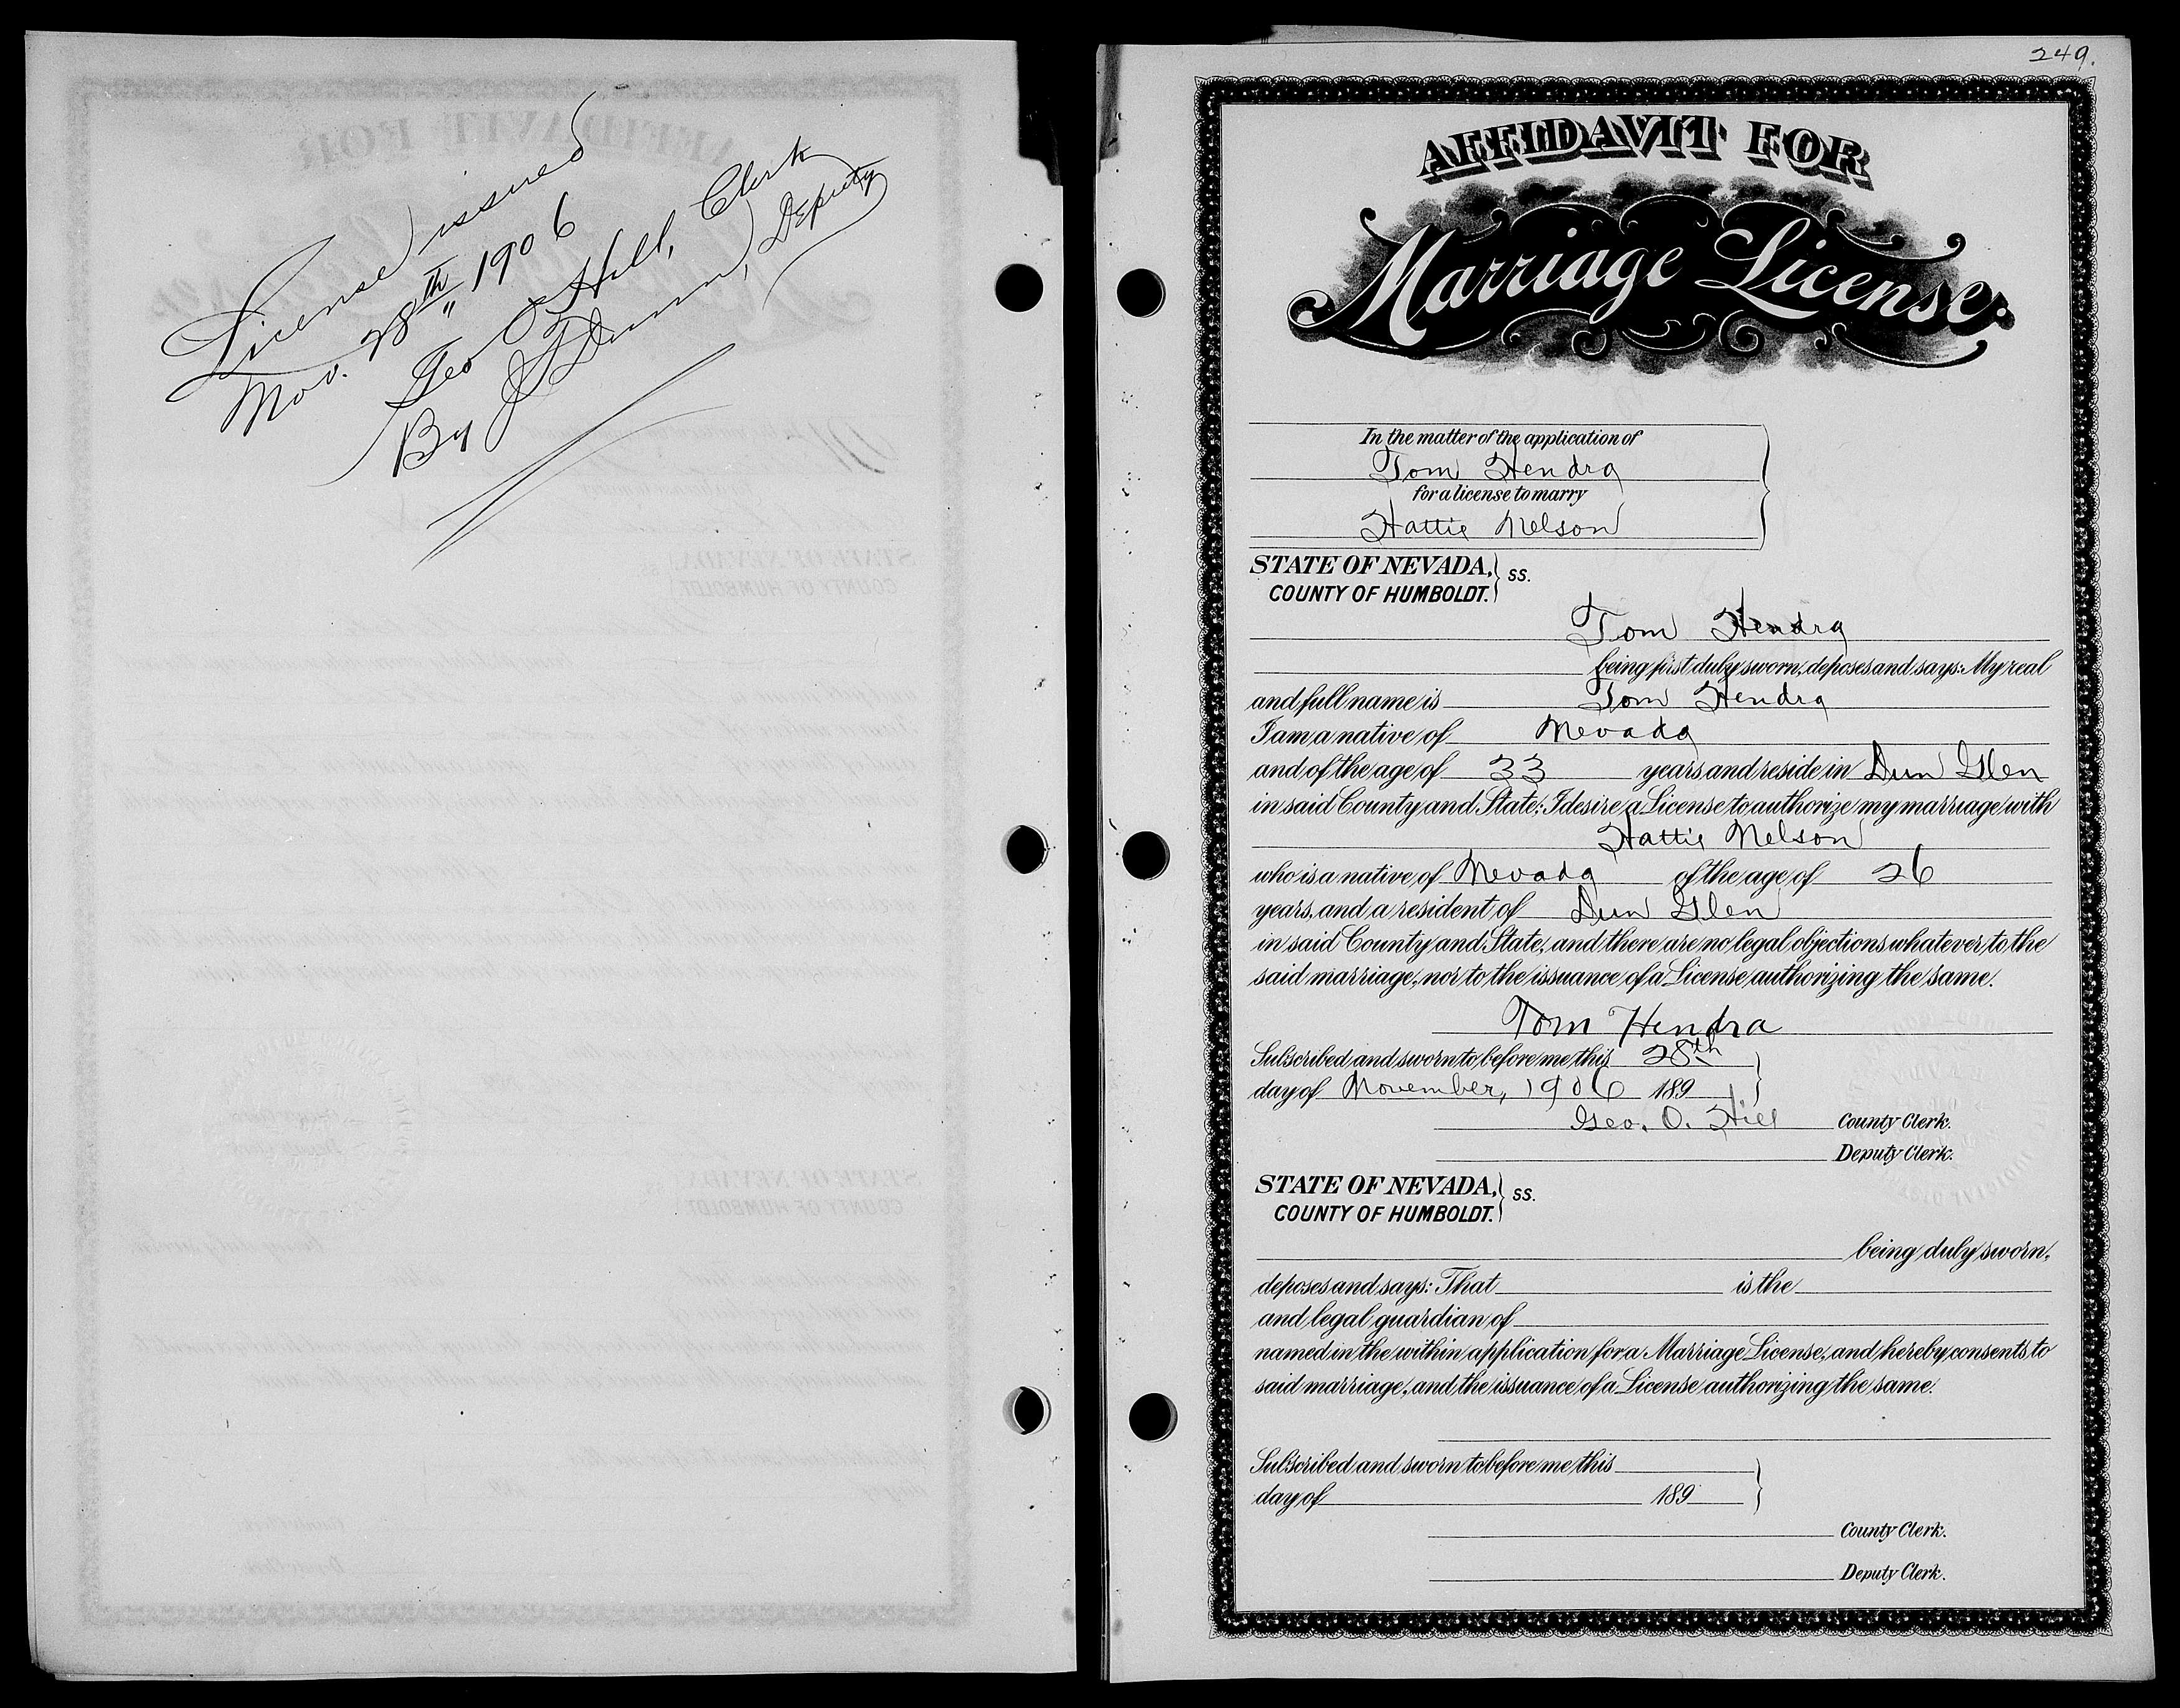 License issued
Nov. 28th 1906
Geo O Hill, Clerk
By J Dunn, Deputy
249.
AFFIDAVIT FOR
Marriage License.
In the matter of the application of
Tom Hendra
for a license to marry
Hattie Nelson
STATE OF NEVADA, } ss.
COUNTY OF HUMBOLDT.
Tom Hendra
being first duly sworn, deposes and says: My real
and full name is Tom Hendra
I am a native of Nevada
and of the age of 33 years and reside in Dun Glen
in said County and State; I desire a License to authorize my marriage with
Hattie Nelson
who is a native of Nevada of the age of 26
years, and a resident of Dun Glen
in said County and State, and there are no legal objections whatever to the
said marriage, nor to the issuance of a License authorizing the same.
Tom Hendra
Subscribed and sworn to before me this 28th
day of November, 1906 189
Geo. O. Hill County Clerk.
Deputy Clerk.
STATE OF NEVADA, } ss.
COUNTY OF HUMBOLDT.
being duly sworn,
deposes and says: That is the
and legal guardian of
named in the within application for a Marriage License, and hereby consents to
said marriage, and the issuance of a License authorizing the same.
Subscribed and sworn to before me this
day of 189
County Clerk.
Deputy Clerk.